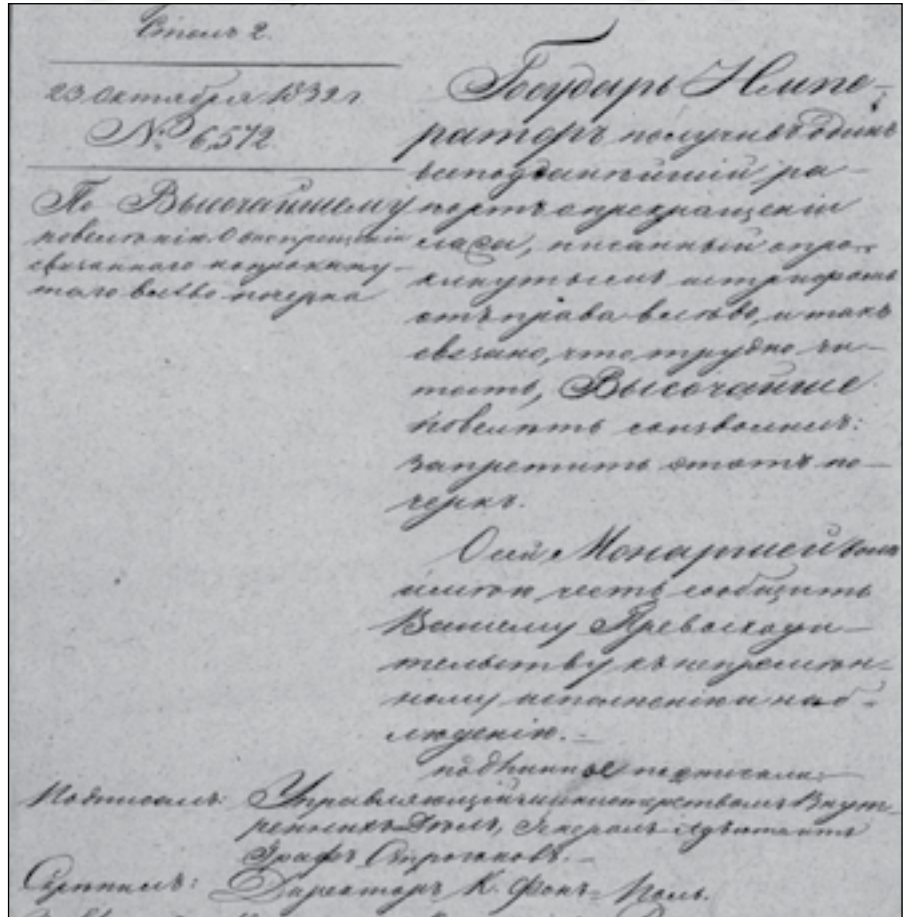 Столъ 2.
23 Октября 1839 г.
№ 6,572.
По Высочайшему
повелѣнію. О воспрещеніи
связаннаго и опрокину-
таго влѣво почерка
Государь Импе-
раторъ получивъ одинъ
всеподданнѣйшій ра-
портъ о прекращеніи
писанный опро-
кинутымъ
отъ права влѣво, и такъ
связано, что трудно чи-
тать, Высочайше
повелѣть соизволилъ:
запретить этотъ по-
черкъ.
О сей Монаршей волѣ
имѣю честь сообщить
Вашему Превосходи-
тельству къ непремѣн-
ному исполненію и наб-
люденію. —
подлинное подписали:
Подписалъ: Управляющій министерствомъ Внут-
реннихъ Дѣлъ, Генералъ Адъютантъ
Графъ Строгановъ. —
Скрѣпилъ: Директоръ К. Фонъ-Поль.